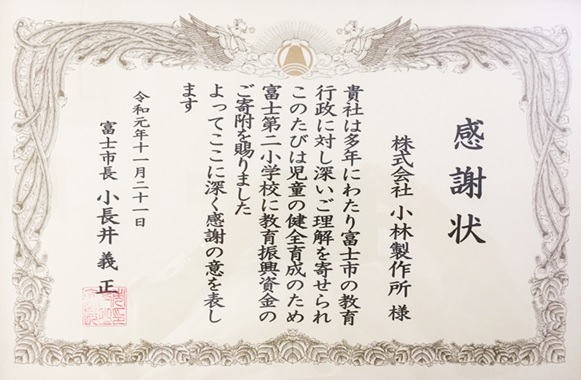 感謝状
株式会社 小林製作所 様
貴社は多年にわたり富士市の教育
行政に対し深いご理解を寄せられ
このたびは児童の健全育成のため
富士第二小学校に教育振興資金の
ご寄附を賜りました
よってここに深く感謝の意を表し
ます
令和元年十一月二十一日
富士市長 小長井 義正